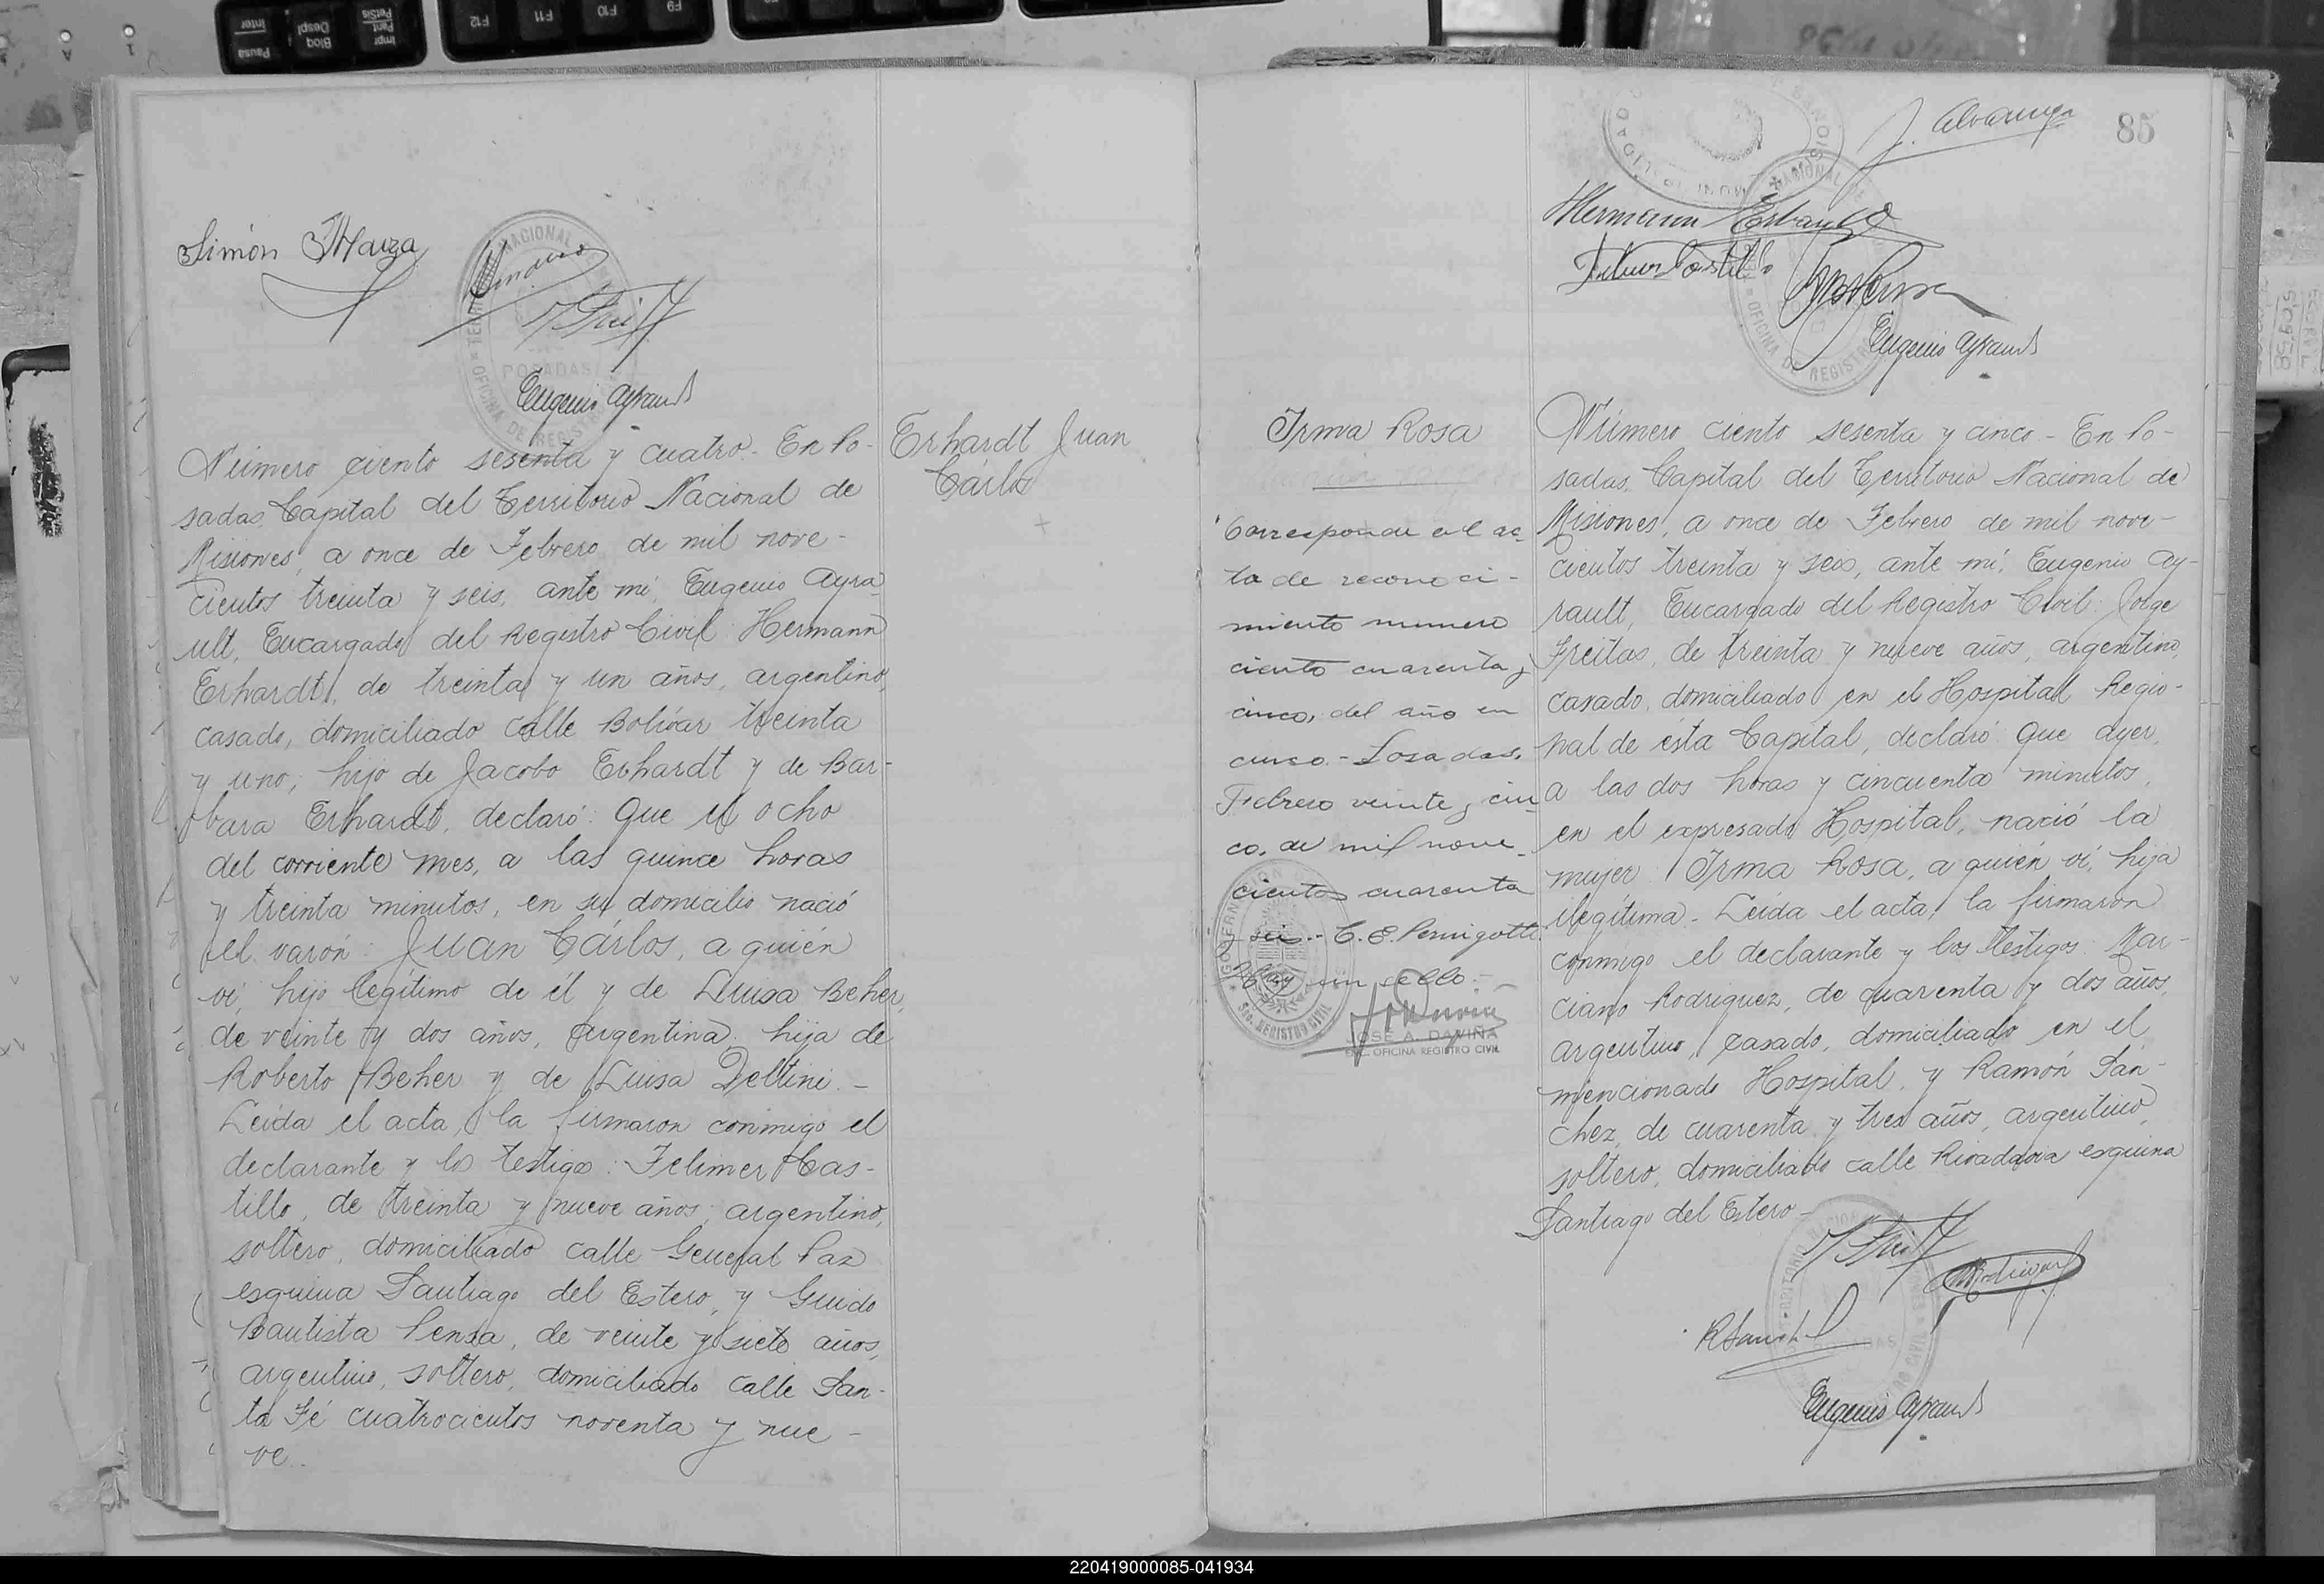 Simón
Eugenio Ayrault
Número ciento sesenta y cuatro - En Po-
sadas, Capital del Territorio Nacional de
Misiones, a once de Febrero de mil nove-
cientos treinta y seis, ante mi, Eugenio Ayra
ult, Encargado del Registro Civil: Hermann
Erhardt, de treinta y un años, argentino,
casado, domiciliado calle Bolívar treinta
y uno, hijo de Jacobo Erhardt y de Bar-
bara Erhardt, declaró: Que el ocho
del corriente mes, a las quince horas
y treinta minutos, en su domicilio nació
el varón: Juan Cárlos, a quién
ví, hijo legítimo de él y de Luisa Beher,
de veinte y dos años, argentina, hija de
Roberto Beher y de Luisa Deltini. -
Leida el acta, la firmaron conmigo el
declarante y los testigos: Felimer Cas-
tillo, de treinta y nueve años, argentino,
soltero, domiciliado calle General Paz
esquina Santiago del Estero, y Guido
Bautista Pensa, de veinte y siete años,
argentino, soltero, domiciliado calle San-
ta Fé cuatrocientos noventa y nue -
ve.
Erhardt Juan
Cárlos
85
J. Alvarenga
Hermann Erhardt
Felimer Castillo
Eugenio Ayrault
Irma Rosa
Corresponde al ac-
ta de reconoci-
miento numero
ciento cuarenta y
cinco, del año en
curso. - Posadas,
Febrero veinte y cin-
co, de mil nove-
cientos cuarenta
y seis. - C. E. Pernigotti.
un sello. -
JOSE A. DAVIÑA
ENC. OFICINA REGISTRO CIVIL
Número ciento sesenta y cinco - En Po-
sadas, Capital del Territorio Nacional de
Misiones, a once de Febrero de mil nove-
cientos treinta y seis, ante mí, Eugenio Ay-
rault, Encargado del Registro Civil: Jorge
Freitas, de treinta y nueve años, argentino,
casado, domiciliado en el Hospital Regio-
nal de ésta Capital, declaró: Que ayer,
a las dos horas y cincuenta minutos,
en el expresado Hospital, nació la
mujer: Irma Rosa, a quién ví, hija
ilegítima. - Leida el acta, la firmaron
conmigo el declarante y los testigos: Mar-
ciano Rodriguez, de cuarenta y dos años,
argentino, casado, domiciliado en el
mencionado Hospital, y Ramón Sán-
chez, de cuarenta y tres años, argentino,
soltero, domiciliado calle Rivadavia esquina
Santiago del Estero -
Eugenio Ayrault
220419000085-041934